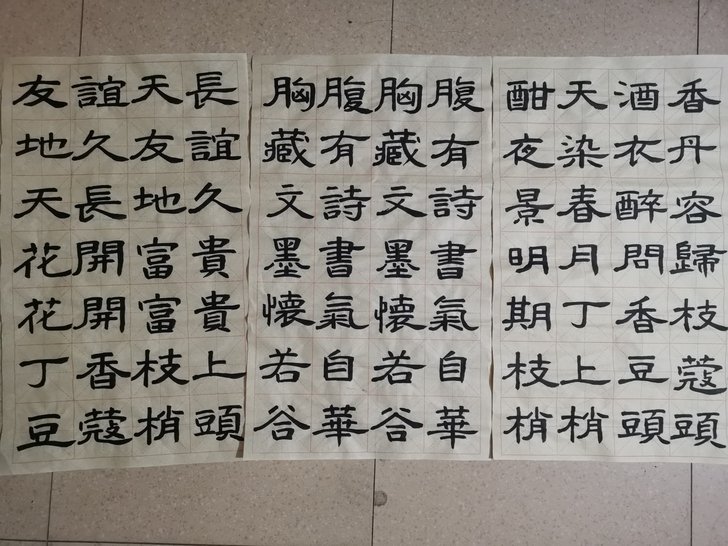 友誼天長
地久友誼
天長地久
花開富貴
花開富貴
丁香枝上
豆蔻梢頭
胸藏文墨懷若谷
腹有詩書氣自華
胸藏文墨懷若谷
腹有詩書氣自華
酣天酒香
夜染衣丹
景春醉容
明月問歸
期丁香枝
枝上豆蔻
梢梢頭頭